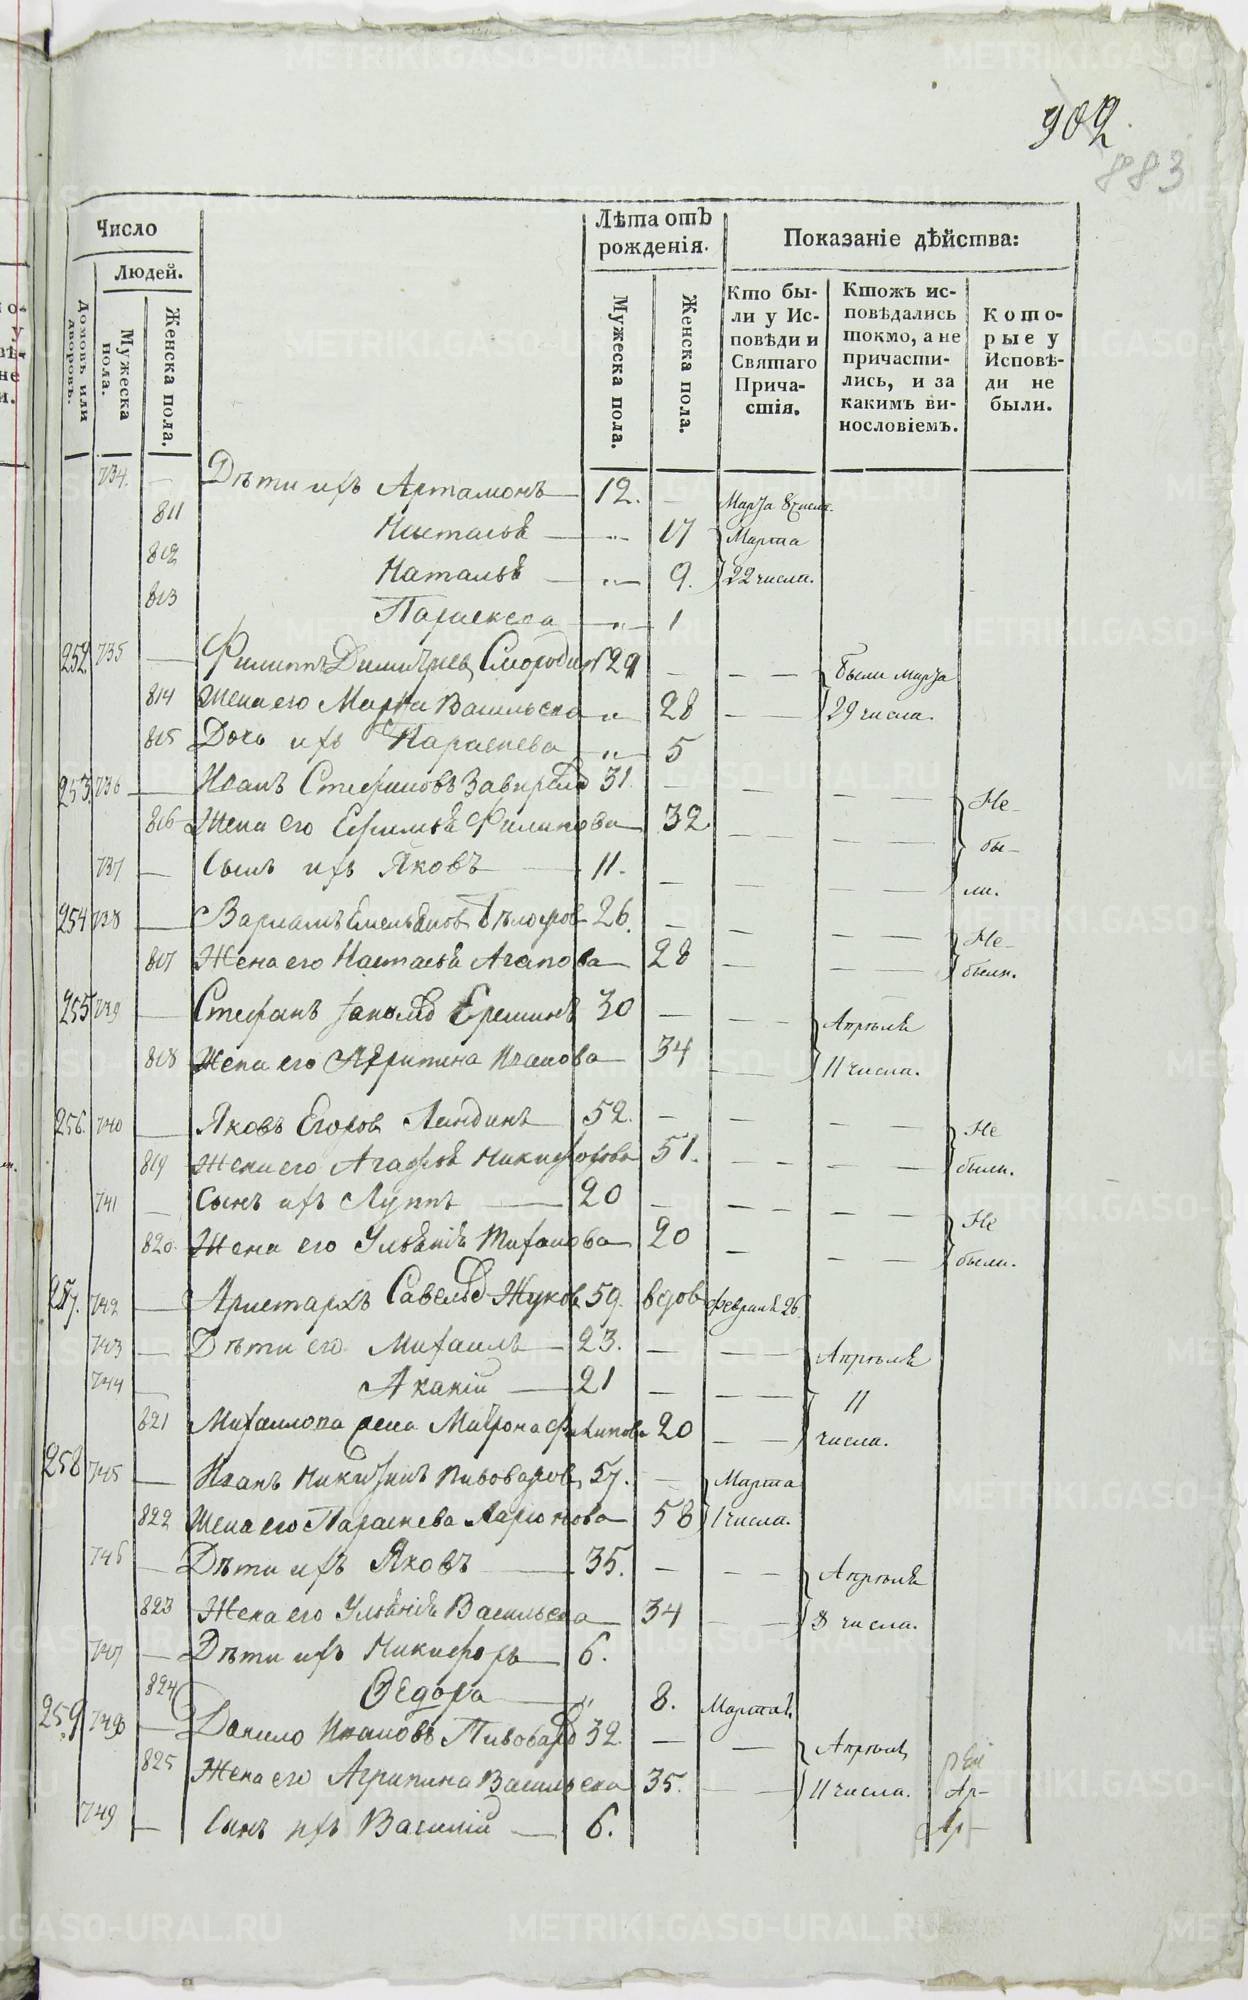 902.
883
Число
Людей.
Домовъ или дворовъ.
Мужеска пола.
Женска пола.
Лѣта отъ рожденія.
Мужеска пола.
Женска пола.
Показаніе дѣйства:
Кто были у Исповѣди и Святаго Причастія.
Ктожъ исповѣдались токмо, а не причастились, и за какимъ винословіемъ.
Которые у Исповѣди не были.
734. — Дѣти ихъ Артамонъ — 12. — Марта 8 числа.
811 Настасья — „ — 17 Марта
812 Наталья — „ — 9. 22 числа.
813 Параскева — „ — 1
252 735 — Филиппъ Димитриев Смородин 29 — — — были Марта
814 Жена его Марѳа Васильева „ 28 — — 29 числа.
815 Дочь ихъ Параскева — „ — 5
253. 736 — Иванъ Стефановъ 31. — — — Не
816 Жена его Филипова — 32 — — — — бы-
737 — Сынъ ихъ Яковъ — 11. — — — — ли.
254 738 — Варламъ Емельянов 26. — — — — Не
817 Жена его Настасья Агапова — 28 — — — — были.
255 739 — Стефанъ Ереминъ 30 — — — Апрѣля
818 Жена его Агрипина Иванова — 34 — — 11 числа.
256. 740 — Яковъ Егоров Пандинъ — 52. — — — — Не
819 Жена его Агафья Никифорова 51. — — — — были.
741 — Сынъ ихъ Луппъ — 20 — — — — — Не
820. Жена его Ульянія — 20 — — — были.
257. 742 — Аристархъ Савельев Жуков 59. вдов Февраля 26.
743 — Дѣти его Михаилъ — 23. — — — Апрѣля
744 — Акакій — 21 — — — 11
821 Михаилова жена Матрона Филипова 20 — — числа.
258 745 — Иванъ Никитинъ Пивоваров 57. — Марта
822 Жена его Параскева Ларионова — 58 1 числа.
746 — Дѣти ихъ Яковъ — 35. — — — Апрѣля
823 Жена его Ульянія Васильева — 34 — — 8 числа.
747 — Дѣти ихъ Никифоръ — 6.
824 Ѳедора — „ 8. Марта 1.
259. 748 — Данило Ивановъ Пивоваров 32. — — Апрѣля
825 Жена его Агрипина Васильева 35. — — 11 числа.
749 — Сынъ ихъ Василій — 6.
METRIKI.GASO-URAL.RU